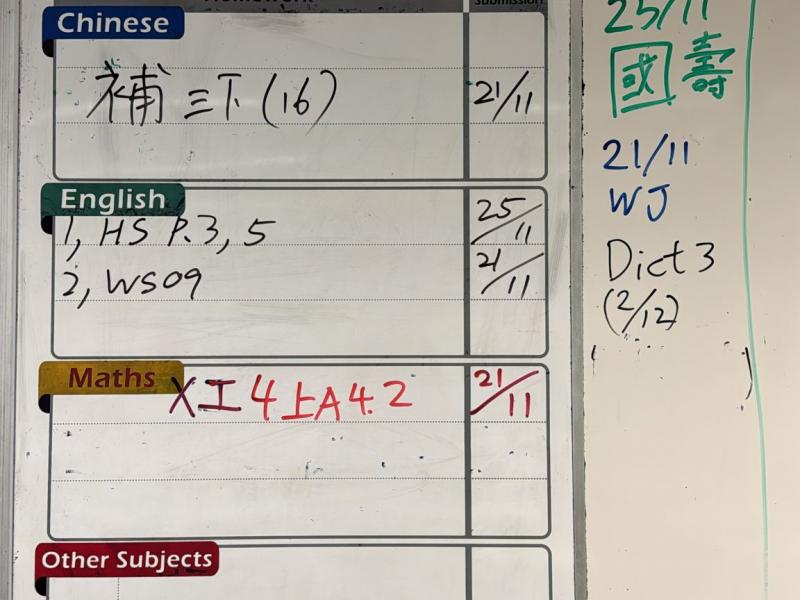 Submission
Chinese
補三下(16) 21/11
English
1, HS P.3, 5 25/11
2, WS09 21/11
Maths
X工4上A4.2 21/11
Other Subjects
25/11
國壽
21/11
WJ
Dict 3
(2/12)